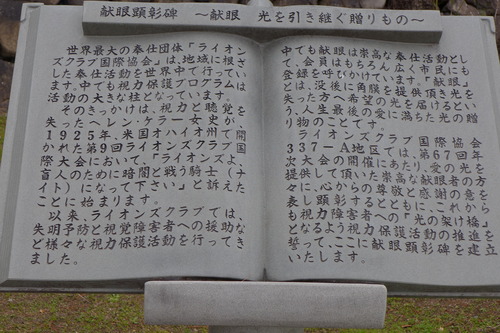 献眼顕彰碑 〜献眼 光を引き継ぐ贈りもの〜
世界最大の奉仕団体「ライオン
ズクラブ国際協会」は、地域に根ざ
した奉仕活動を世界中で行ってい
ます。中でも視力保護プログラムは
活動の大きな柱となっています。
そのきっかけは、視力と聴覚を
失ったヘレン・ケラー女史が、
1925年、米国オハイオ州で開
かれた第9回ライオンズクラブ国
際大会において、「ライオンズよ、
盲人のために暗闇と戦う騎士（ナ
イト）になって下さい」と訴えた
ことに始まります。
以来、ライオンズクラブでは、
失明予防と視覚障害者への援助な
ど様々な視力保護活動を行ってき
ました。
中でも献眼は崇高な奉仕活動とし
て、会員はもちろん広く市民にも
登録を呼びかけています。「献眼」
とは、没後に角膜を提供し頂き光を
失った方へ希望の光を届けるとい
う、人生最後の愛に満ちた光の贈
り物のことです。
ライオンズクラブ国際協会
337-A地区では、第67回年
次大会の開催にあたり、愛の光を
提供して頂いた崇高な献眼者の方
々に、心からの尊敬と感謝の意を
表し顕彰するとともに、これから
も視力障害者への「光の架け橋」
となるよう視力保護活動の推進を
誓って、ここに献眼顕彰碑を建立
いたします。